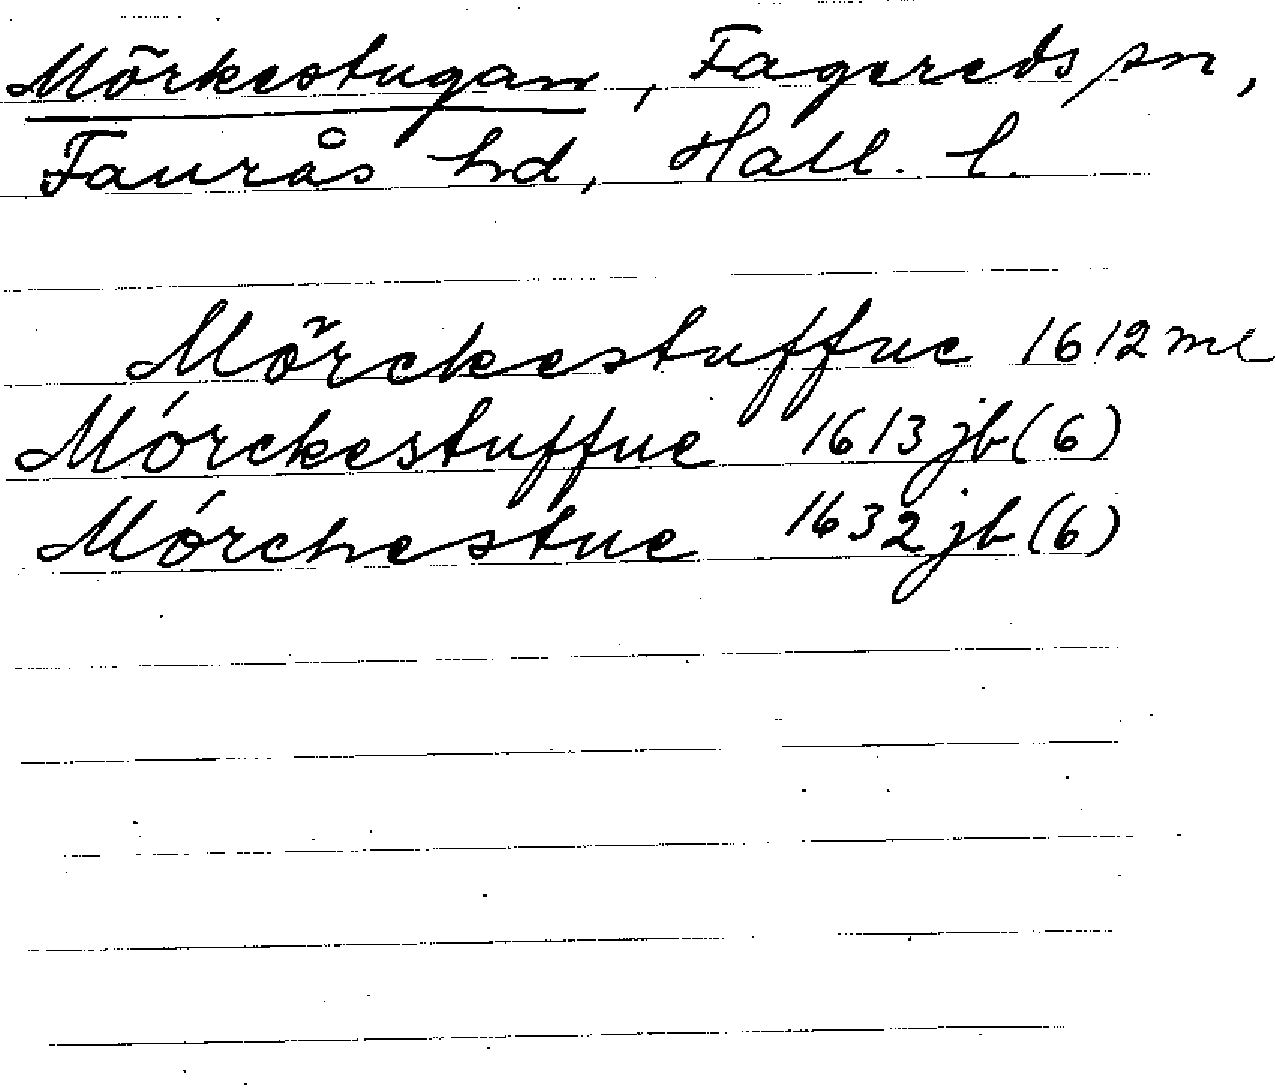 Mörkestugan, Fagereds sn,
Faurås hd, Hall. l.
Mörckestuffue 1612 ml
Mórckestuffue 1613 jb (6)
Mórchestue 1632 jb (6)